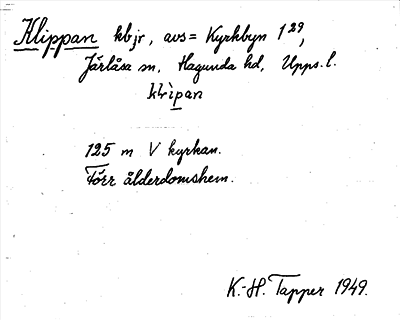 Klippan kbjr, avs = Kyrkbyn 1²⁹,
Järlåsa sn, Hagunda hd, Upps. l.
klìpan
125 m V kyrkan.
Förr ålderdomshem.
K.-H. Tapper 1949.